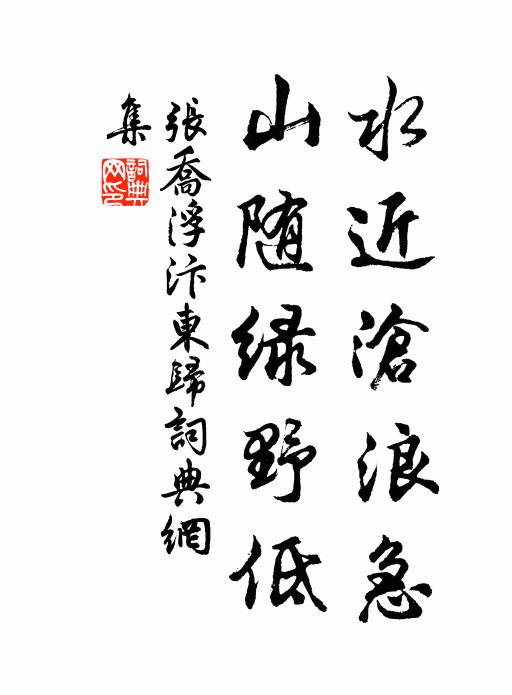 水近滄浪急
山随绿野低
張喬浮汴東歸詞典網
集
詞典
网印